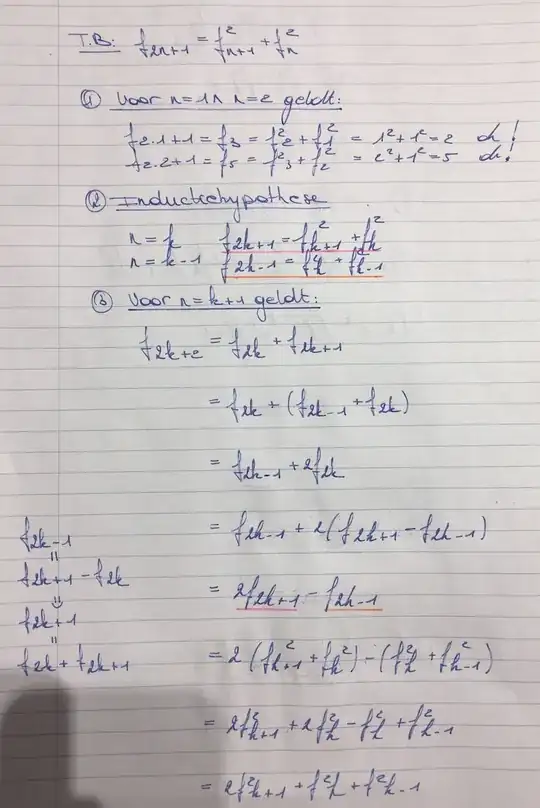 T.B.: f_{2n+1} = f_{n+1}^2 + f_n^2
① Voor n=1 ∧ n=2 geldt:
f_{2·1+1} = f_3 = f_2^2 + f_1^2 = 1^2+1^2 = 2 ok!
f_{2·2+1} = f_5 = f_3^2 + f_2^2 = 2^2+1^2 = 5 ok!
② Inductiehypothese
n=k f_{2k+1} = f_{k+1}^2 + f_k^2
n=k-1 f_{2k-1} = f_k^2 + f_{k-1}^2
③ Voor n=k+1 geldt:
f_{2k+2} = f_{2k} + f_{2k+1}
= f_{2k} + (f_{2k-1} + f_{2k})
= f_{2k-1} + 2f_{2k}
= f_{2k-1} + 2(f_{2k+1} - f_{2k-1})
= 2f_{2k+1} - f_{2k-1}
= 2(f_{k+1}^2 + f_k^2) - (f_k^2 + f_{k-1}^2)
= 2f_{k+1}^2 + 2f_k^2 - f_k^2 + f_{k-1}^2
= 2f_{k+1}^2 + f_k^2 + f_{k-1}^2
f_{2k-1}
=
f_{2k+1} - f_{2k}
f_{2k+1}
=
f_{2k} + f_{2k+1}